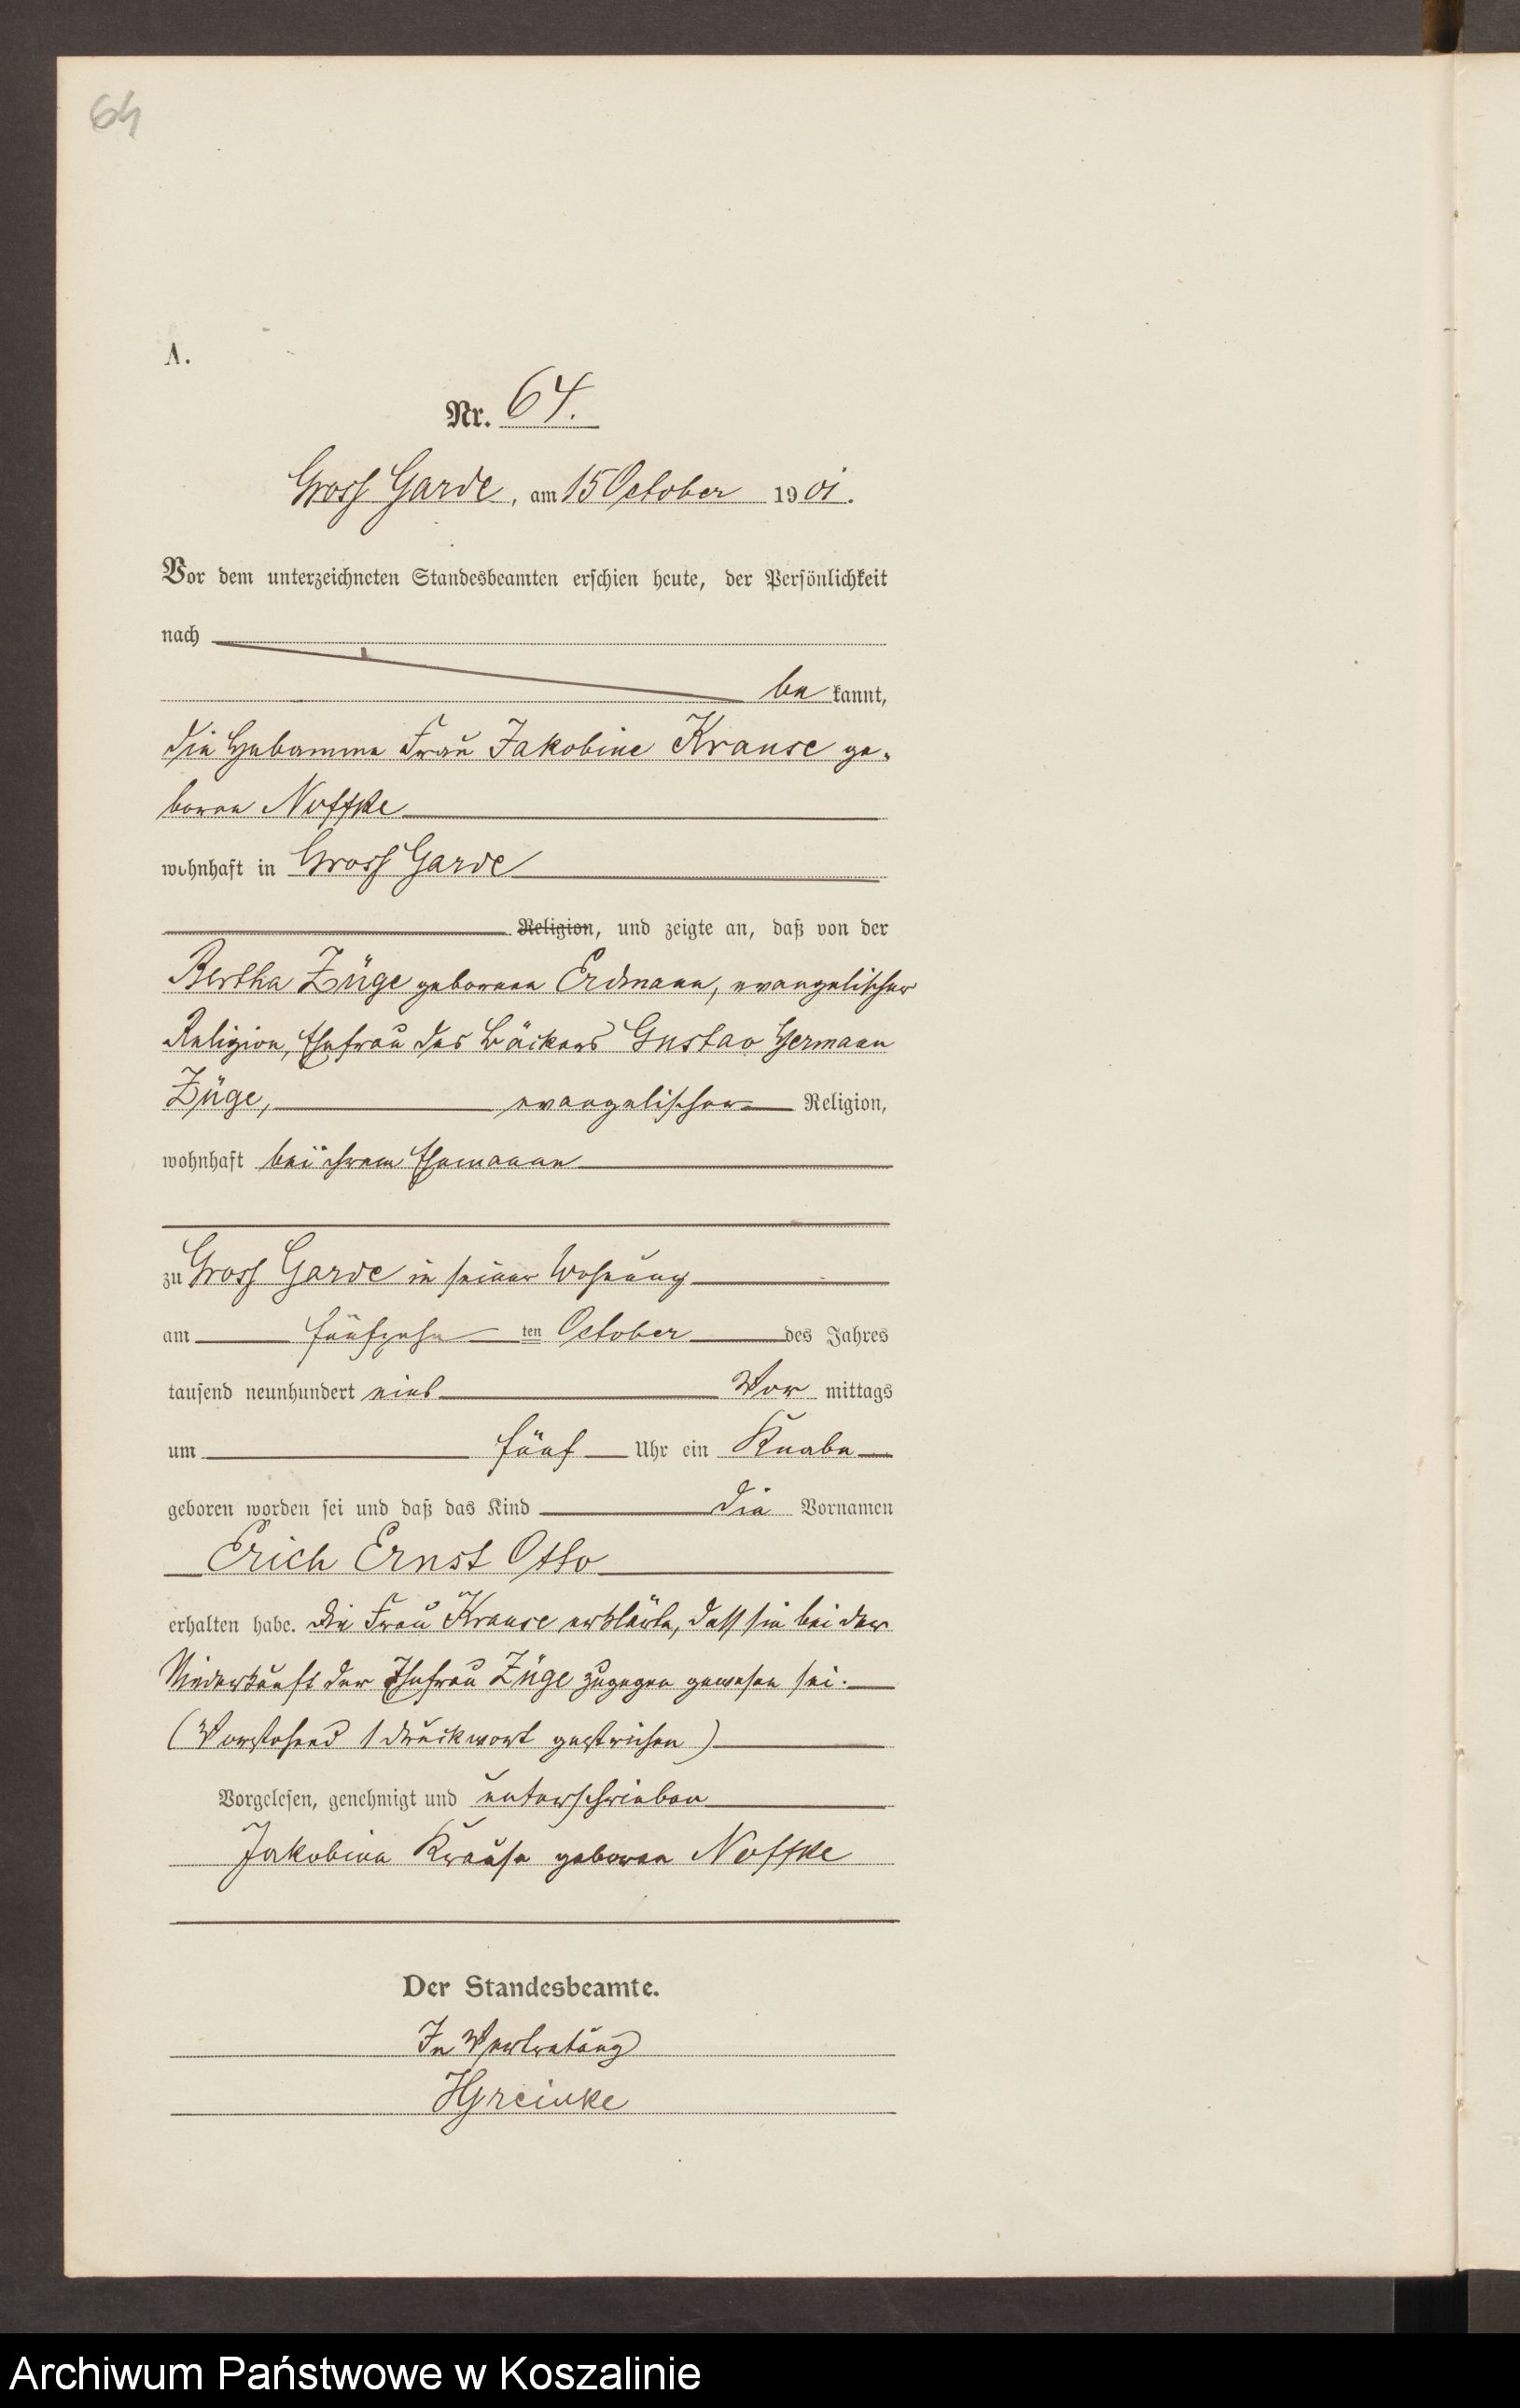 64
A.
Nr. 64.
Gross Garde, am 15 October 1901.
Vor dem unterzeichneten Standesbeamten erschien heute, der Persönlichkeit
nach
be kannt,
die Hebamme Frau Jakobine Krause ge-
boren Noffke
wohnhaft in Gross Garde
Religion, und zeigte an, daß von der
Bertha Züge geborenen Erdmann, evangelischer
Religion, Ehefrau des Bäckers Gustav Hermann
Züge, evangelischer Religion,
wohnhaft bei ihrem Ehemanne
zu Gross Garde in seiner Wohnung
am fünfzehn ten October des Jahres
tausend neunhundert eins Vor mittags
um fünf Uhr ein Knabe
geboren worden sei und daß das Kind die Vornamen
Erich Ernst Otto
erhalten habe. Die Frau Krause erklärte, dass sie bei der
Niederkunft der Ehefrau Züge zugegen gewesen sei.
(Vorstehend 1 Druckwort gestrichen)
Vorgelesen, genehmigt und unterschrieben
Jakobine Krause geboren Noffke
Der Standesbeamte.
In Vertretung
Archiwum Państwowe w Koszalinie